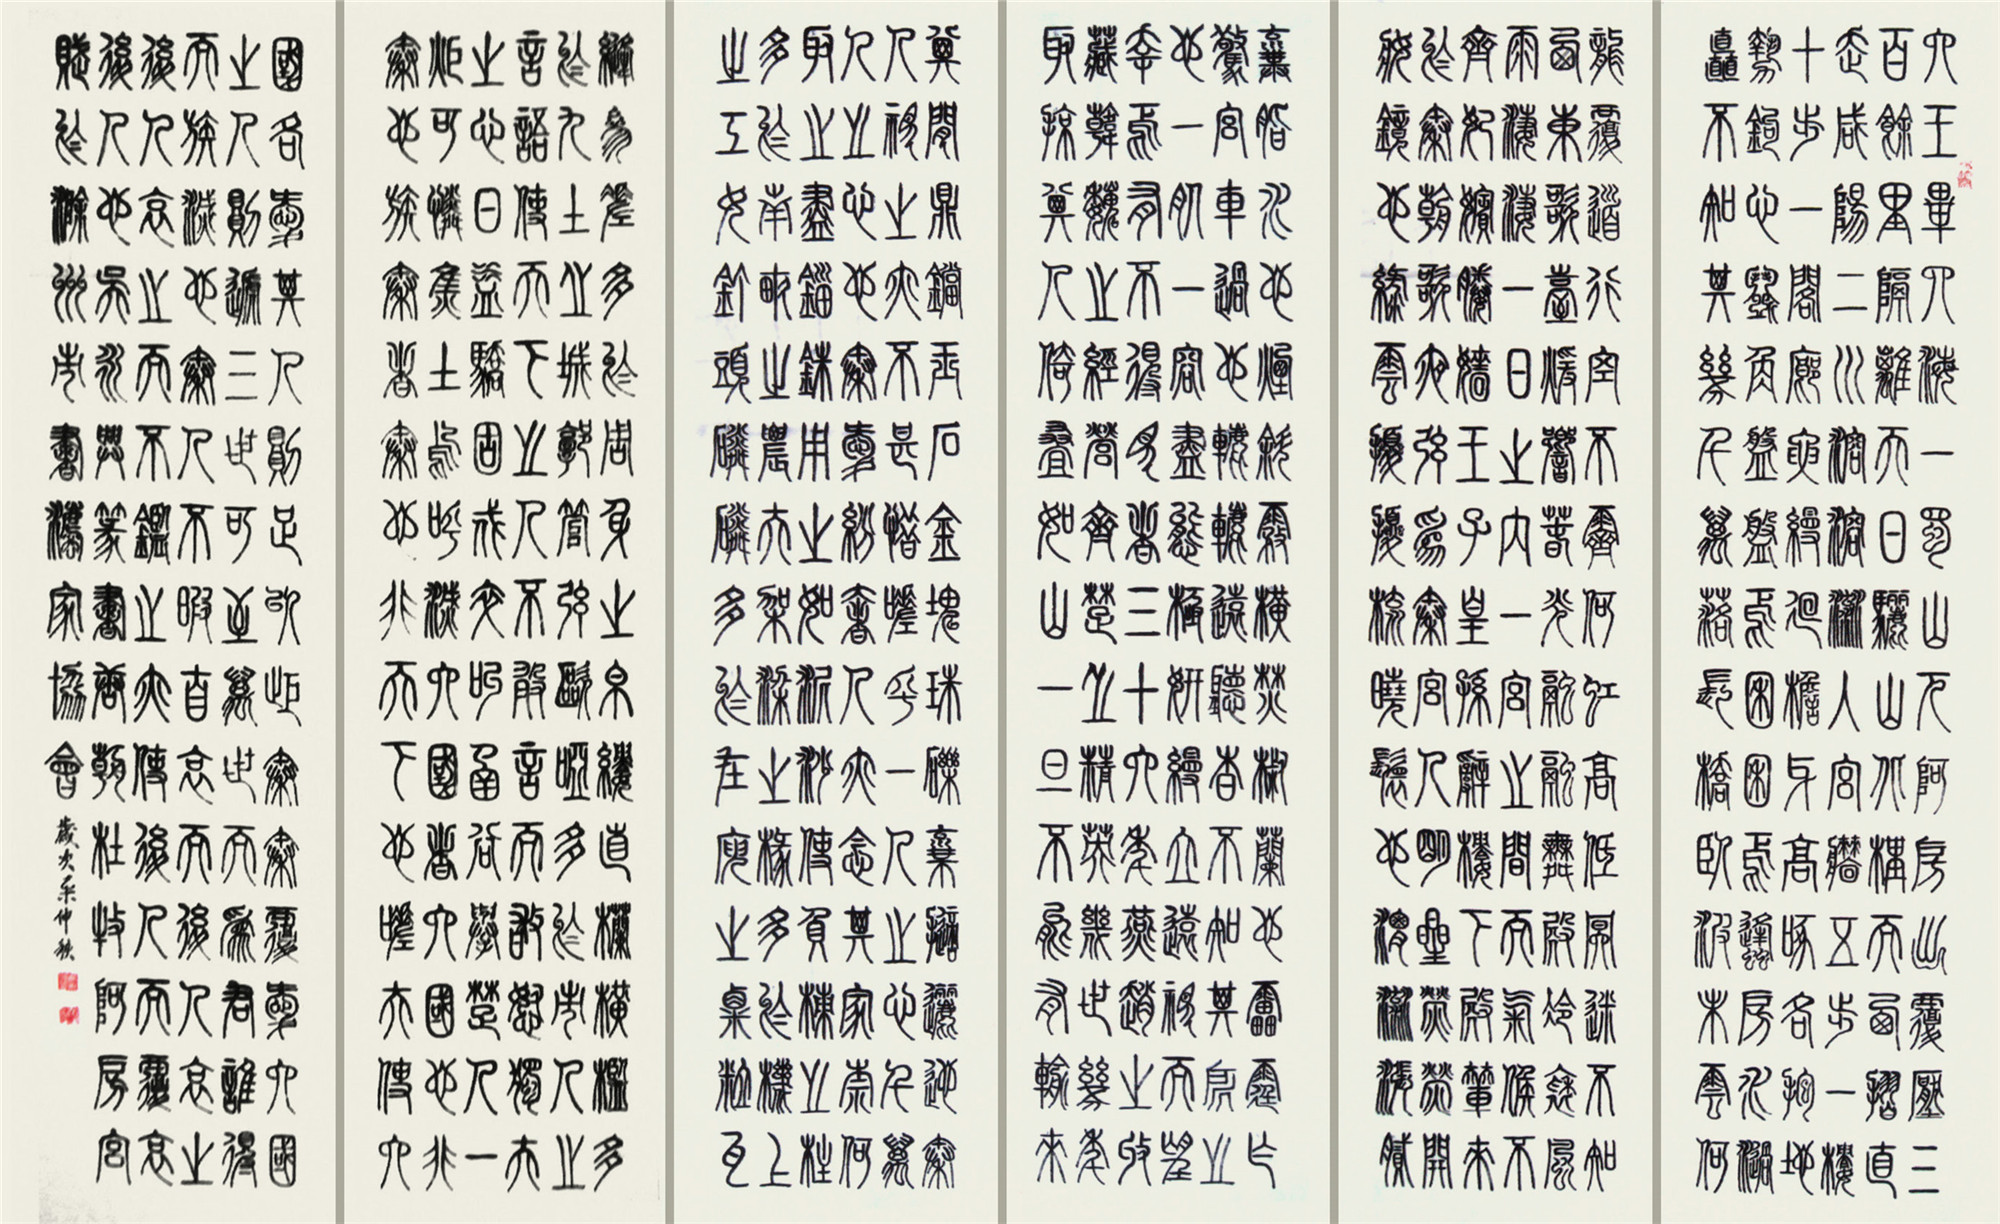 六王畢四海一蜀山兀阿房出覆壓三
百餘里隔離天日驪山北構而西摺直
走咸陽二川溶溶流入宮牆五步一樓
十步一閣廊腰縵迴檐牙高啄各抱地
勢鉤心鬬角盤盤焉囷囷焉蜂房水渦
矗不知其幾千萬落長橋臥波未雲何
龍覆道行空不霽何虹高低冥迷不知
西東歌臺暖響春光融融舞殿冷袖風
雨淒淒一日之內一宮之間而氣候不
齊妃嬪媵嬙王子皇孫辭樓下殿輦來
於秦朝歌夜弦為秦宮人明星熒熒開
妝鏡也綠雲擾擾梳曉鬟也渭流漲膩
棄脂水也煙斜霧橫焚椒蘭也雷霆乍
驚宮車過也轆轆遠聽杳不知其所之
也一肌一容盡態極妍縵立遠視而望
幸焉有不得見者三十六年燕趙之收
藏韓魏之經營齊楚之精英幾世幾年
取掠其人倚疊如山一旦不能有輸來
其間鼎鐺玉石金塊珠礫棄擲邐迤秦
人視之亦不甚惜嗟乎一人之心千萬
人之心也秦愛紛奢人亦念其家奈何
取之盡錙銖用之如泥沙使負棟之柱
多於南畝之農夫架梁之椽多於機上
之工女釘頭磷磷多於在庾之粟粒瓦
縫參差多於周身之帛縷直欄橫檻多
於九土之城郭管弦嘔啞多於市人之
言語使天下之人不敢言而敢怒獨夫
之心日益驕固戍卒叫函谷舉楚人一
炬可憐焦土嗚呼滅六國者六國也非
秦也族秦者秦也非天下也嗟夫使六
國各愛其人則足以拒秦秦復愛六國
之人則遞三世可至萬世而為君誰得
而族滅也秦人不暇自哀而後人哀之
後人哀之而不鑑之亦使後人而復哀
後人也吳永興篆書唐朝杜牧阿房宮
賦於滁州市書法家協會
歲次仲秋